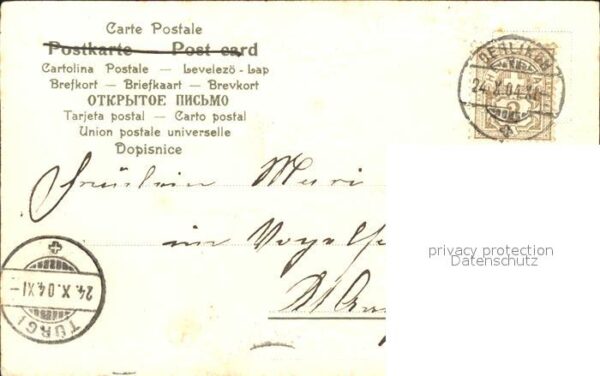 Carte Postale
Postkarte — Post card
Cartolina Postale — Levelező-Lap
Brefkort — Briefkaart — Brevkort
ОТКРЫТОЕ ПИСЬМО
Tarjeta postal — Carto postal
Union postale universelle
Dopisnice
OERLIKON
24.X.04.XI-
2
Fräulein Meri
im
privacy protection
Datenschutz
TURGI
24.X.04.XI-